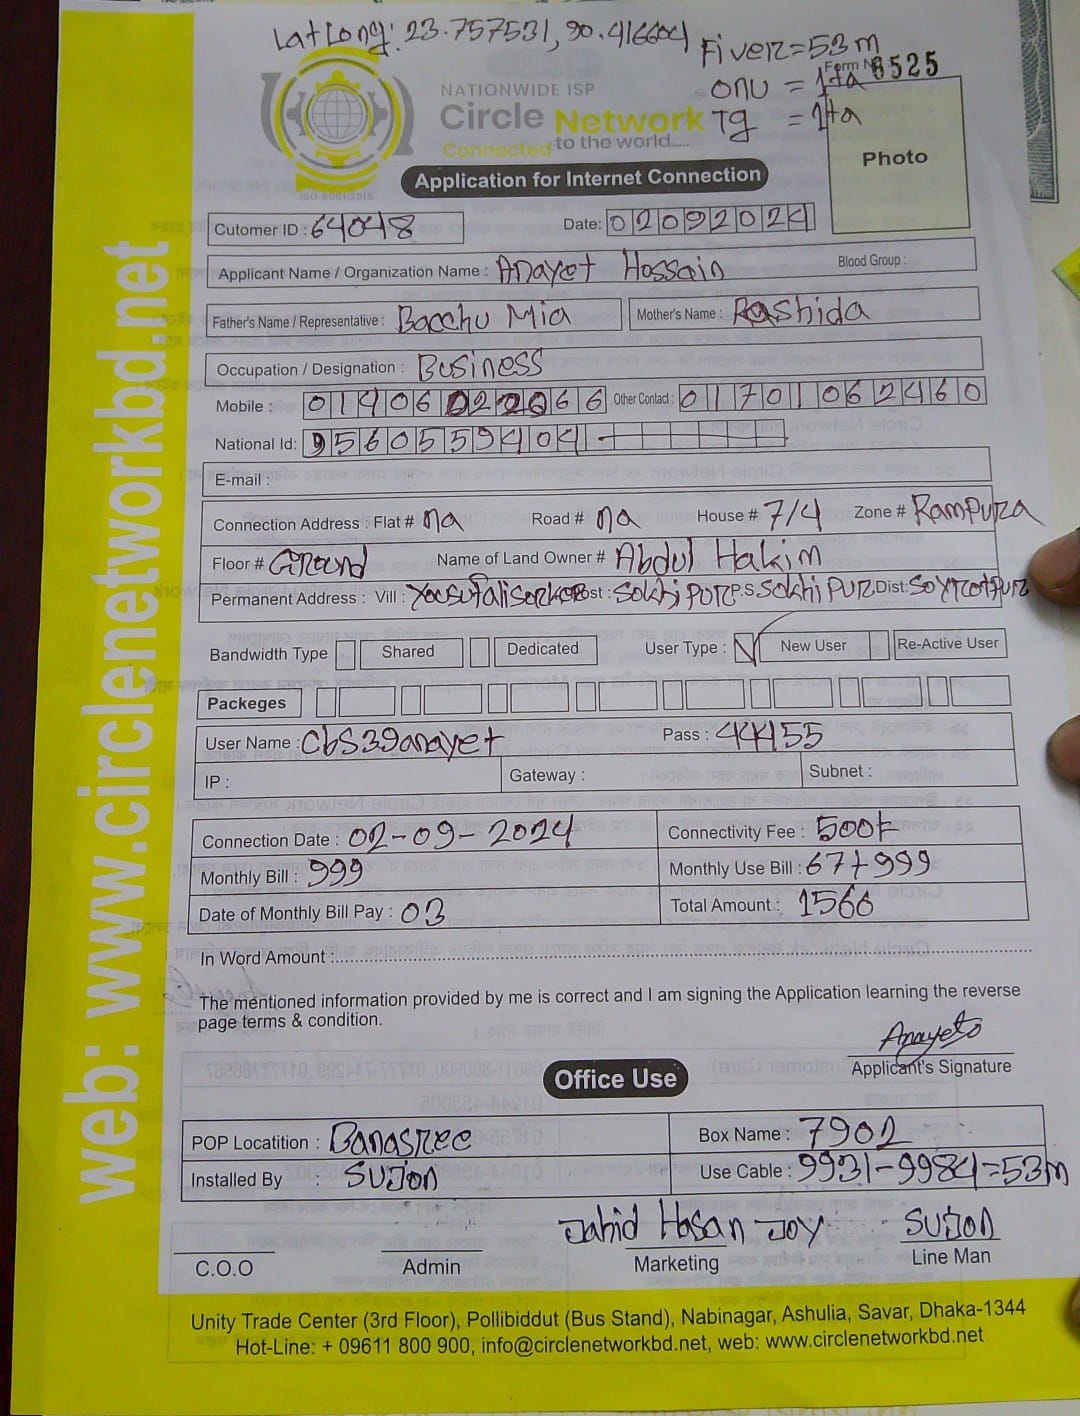 Lat Long: 23.757531, 90.416604
Fiver = 53m
Form No 8525
onu = 1ta
Tg = 1ta
NATIONWIDE ISP
Circle Network
Connected to the world.....
ISO 9001:2015
Photo
Application for Internet Connection
Cutomer ID : 64048 Date: 02092024
Applicant Name / Organization Name : Anayet Hossain Blood Group :
Father's Name / Representative : Bacchu Mia Mother's Name : Rashida
Occupation / Designation : Business
Mobile : 01406022066 Other Contact : 01701062460
National Id: 9560559404 -
E-mail :
Connection Address : Flat # na Road # na House # 7/4 Zone # Rampura
Floor # Ground Name of Land Owner # Abdul Hakim
Permanent Address : Vill : Post : Sokhipur P.S. Sokhipur Dist:
Bandwidth Type Shared Dedicated User Type : ✓ New User Re-Active User
Packeges
User Name : Cbs39anayet Pass : 44155
IP : Gateway : Subnet :
Connection Date : 02-09-2024 Connectivity Fee : 500৳
Monthly Bill : 999 Monthly Use Bill : 67+999
Date of Monthly Bill Pay : 03 Total Amount : 1566
In Word Amount :
The mentioned information provided by me is correct and I am signing the Application learning the reverse
page terms & condition.
Anayeto
Applicant's Signature
Office Use
POP Locatition : Banasree Box Name : 7902
Installed By : SUJon Use Cable : 9931-9984=53m
Jahid Hasan Joy SUJon
C.O.O Admin Marketing Line Man
Unity Trade Center (3rd Floor), Pollibiddut (Bus Stand), Nabinagar, Ashulia, Savar, Dhaka-1344
Hot-Line: + 09611 800 900, info@circlenetworkbd.net, web: www.circlenetworkbd.net
web: www.circlenetworkbd.net